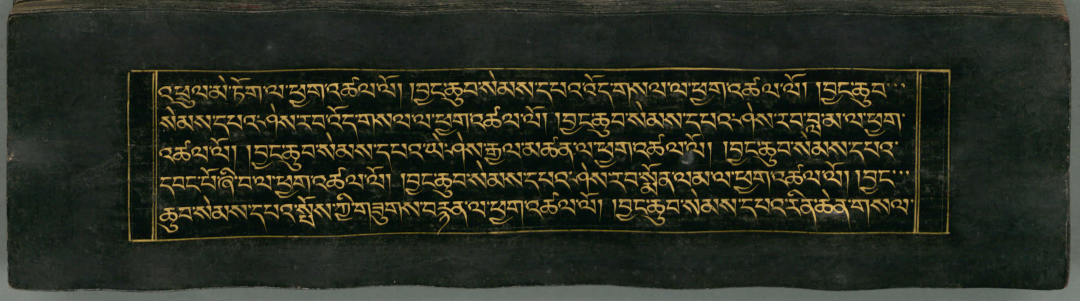 འཕྲུལ་མེ་ཏོག་ལ་ཕྱག་འཚལ་ལོ། །བྱང་ཆུབ་སེམས་དཔའ་འོད་གསལ་ལ་ཕྱག་འཚལ་ལོ། །བྱང་ཆུབ་
སེམས་དཔའ་ཤེས་རབ་འོད་གསལ་ལ་ཕྱག་འཚལ་ལོ། །བྱང་ཆུབ་སེམས་དཔའ་ཤེས་རབ་བླ་མ་ལ་ཕྱག་
འཚལ་ལོ། །བྱང་ཆུབ་སེམས་དཔའ་ཡེ་ཤེས་རྒྱལ་མཚན་ལ་ཕྱག་འཚལ་ལོ། །བྱང་ཆུབ་སེམས་དཔའ་
དབང་པོ་ཞི་བ་ལ་ཕྱག་འཚལ་ལོ། །བྱང་ཆུབ་སེམས་དཔའ་ཤེས་རབ་སྨོན་ལམ་ལ་ཕྱག་འཚལ་ལོ། །བྱང་
ཆུབ་སེམས་དཔའ་སྤོས་ཀྱི་གཟུགས་བརྙན་ལ་ཕྱག་འཚལ་ལོ། །བྱང་ཆུབ་སེམས་དཔའ་རིན་ཆེན་གསལ་